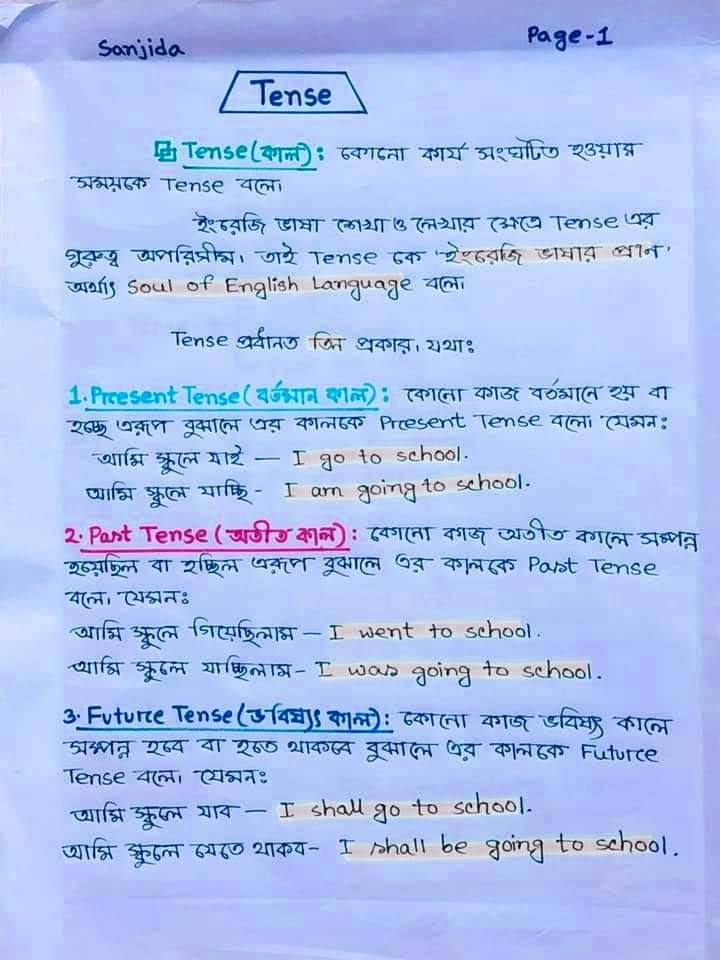 Sanjida
Page-1
Tense
Tense (কাল): কোনো কার্য সংঘটিত হওয়ার
সময়কে Tense বলে।
ইংরেজি ভাষা শেখা ও লেখার ক্ষেত্রে Tense এর
গুরুত্ব অপরিসীম। তাই Tense কে 'ইংরেজি ভাষার প্রান'
অর্থাৎ Soul of English Language বলে।
Tense প্রধানত তিন প্রকার। যথাঃ
1. Present Tense (বর্তমান কাল): কোনো কাজ বর্তমানে হয় বা
হচ্ছে এরূপ বুঝালে এর কালকে Present Tense বলে। যেমনঃ
আমি স্কুলে যাই — I go to school.
আমি স্কুলে যাচ্ছি - I am going to school.
2. Past Tense (অতীত কাল): কোনো কাজ অতীত কালে সম্পন্ন
হয়েছিল বা হচ্ছিল এরূপ বুঝালে এর কালকে Past Tense
বলে। যেমনঃ
আমি স্কুলে গিয়েছিলাম — I went to school.
আমি স্কুলে যাচ্ছিলাম - I was going to school.
3. Future Tense (ভবিষ্যৎ কাল): কোনো কাজ ভবিষ্যৎ কালে
সম্পন্ন হবে বা হতে থাকবে বুঝালে এর কালকে Future
Tense বলে। যেমনঃ
আমি স্কুলে যাব — I shall go to school.
আমি স্কুলে যেতে থাকব - I shall be going to school.